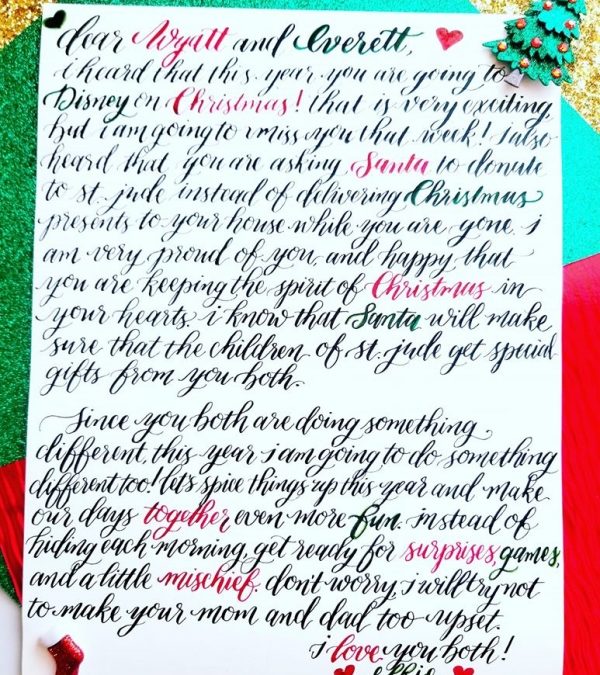 dear Wyatt and Everett,
i heard that this year you are going to
Disney on Christmas! that is very exciting,
but i am going to miss you that week! I also
heard that you are asking Santa to donate
to st. jude instead of delivering Christmas
presents to your house while you are gone. i
am very proud of you and happy that
you are keeping the spirit of Christmas in
your hearts. i know that Santa will make
sure that the children of st. jude get special
gifts from you both.
Since you both are doing something
different this year i am going to do something
different too! let's spice things up this year and make
our days together even more fun. instead of
hiding each morning, get ready for surprises, games,
and a little mischief. don't worry, i will try not
to make your mom and dad too upset.
i love you both!